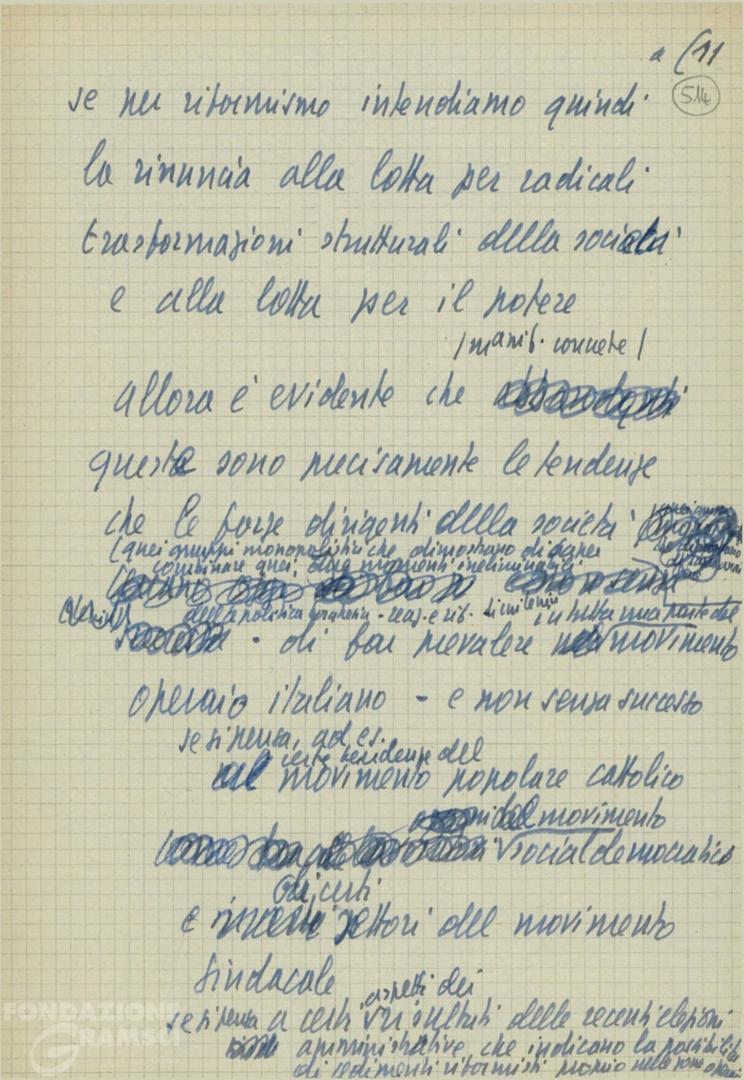 a (11
514
se per riformismo intendiamo quindi
la rinuncia alla lotta per radicali
trasformazioni strutturali della società
e alla lotta per il potere
/manif. concrete/
allora è evidente che
queste sono precisamente le tendenze
che le forze dirigenti della società
(quei gruppi monopolistici che dimostrano di saper
combinare quei due momenti ineliminabili
della politica borghese - reaz. e rif.
in tutta una parte del
- di far prevalere movimento
operaio italiano - e non senza successo
se si pensa, ad es.
certe tendenze del
al movimento popolare cattolico
del movimento
socialdemocratico
di certi
e settori del movimento
sindacale
aspetti dei
se si pensa a certi risultati delle recenti elezioni
amministrative che indicano la possibilità
di sedimenti riformisti proprio nelle zone operaie
FONDAZIONE
GRAMSCI